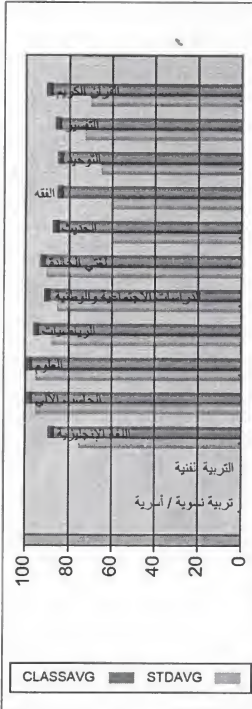 القرآن الكريم
التفسير
التوحيد
الفقه
الحديث
لغتي الخالدة
الدراسات الاجتماعية والوطنية
الرياضيات
العلوم
الحاسب الآلي
اللغة الإنجليزية
التربية الفنية
تربية نسوية / أسرية
100 80 60 40 20 0
CLASSAVG STDAVG